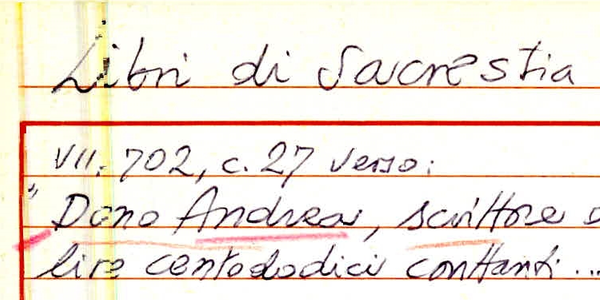 Libri di Sacrestia
VII. 702, c. 27 verso:
" Dono Andrea, scrittore
lire centododici conttanti...